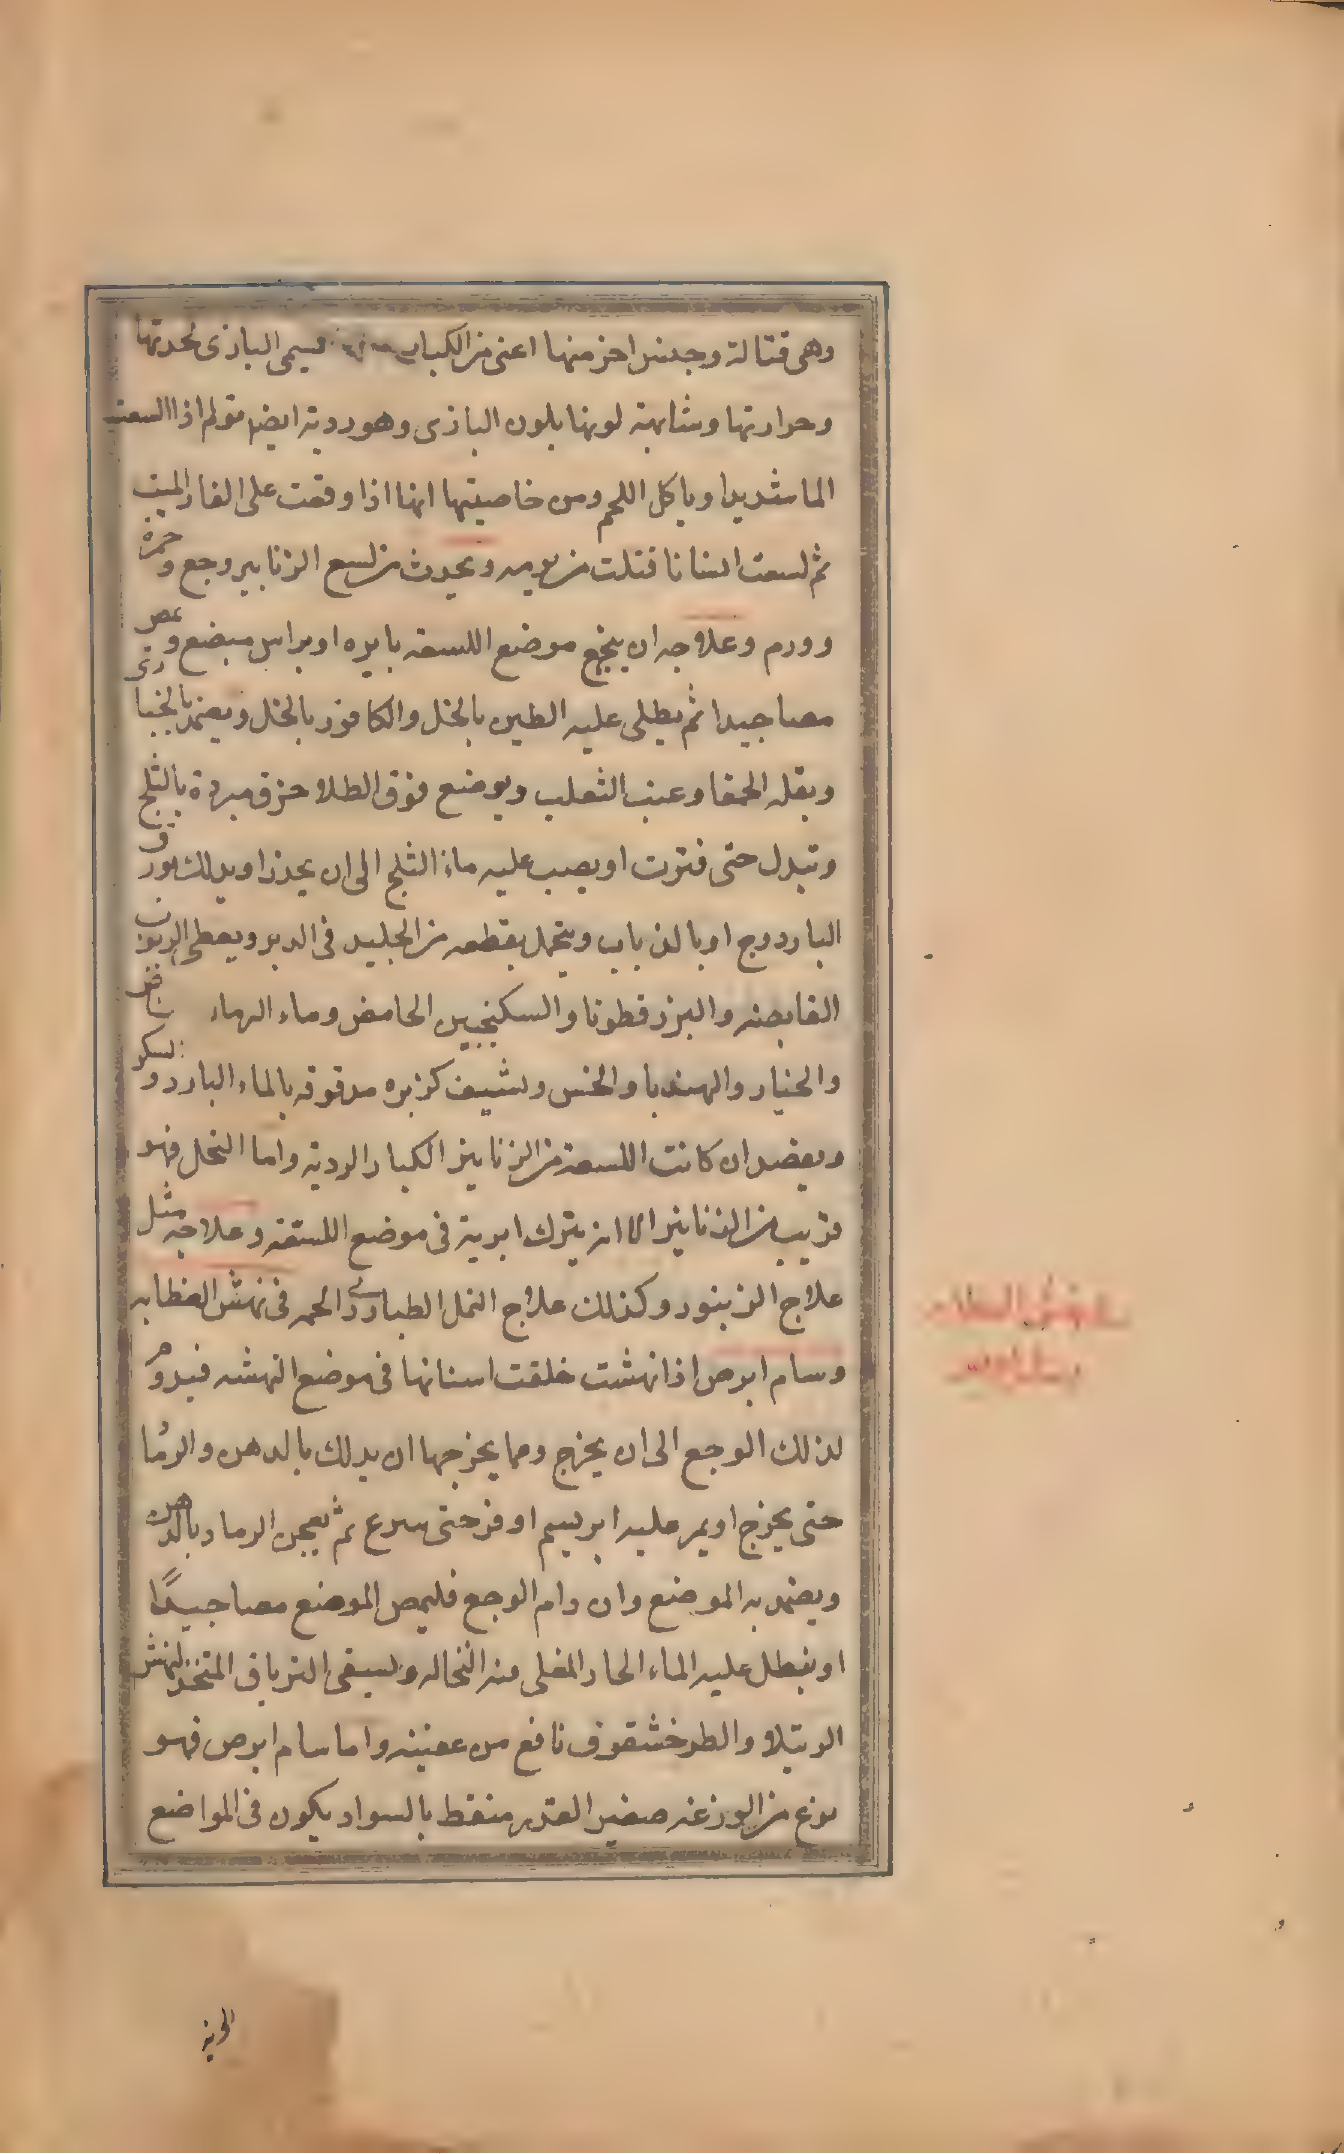 وهى قتالة وجنس اخر منها اعنى من الكبار يسمى البازى لحدتها
وحرارتها ومشابهة لونها بلون البازى وهو ردية ايضا تولم اذا السعت
الما شديدا وياكل اللحم ومن خاصيتها انها اذا وقعت على الفار الميت
ثم لسعت انسانا قتلت من يومه ويحدث من لسع الزنابير وجع وحمرة
وورم وعلاجه ان يبخع موضع اللسعه بابره او براس مبضع ويمص
مصا جيدا ثم يطلى عليه الطين بالخل والكافور بالخل ويضمد بالخبازى
وبقله الحمقا وعنب الثعلب ويوضع فوق الطلا خرق مبردة بالثلج
وتبدل حتى فترت او يصب عليه ماء الثلج الى ان يخدر او يدلك بورق
البادروج او بالذباب ويتحمل بقطعه من الجليد فى الدبر ويعطى الربوب
القابضه والبزر قطونا والسكنجبين الحامض وماء الرمان الحامض
والخيار والهندبا والخس وتسفيف كزبره مدقوقه بالماء البارد والسكر
ويفصد ان كانت اللسعة من الزنابير الكبار الردية واما النحل فهو
قريب من الزنابير الا انه يترك ابرية فى موضع اللسعه وعلاجه مثل
علاج الزنبور وكذلك علاج النمل الطيار ذى الحمه فى نهش العظايه
وسام ابرص اذا نهشت خلفت اسنانها فى موضع النهشه فيدوم
لذلك الوجع الى ان يخرج ومما يخرجها ان يدلك بالدهن والرماد
حتى يخرج او يمر عليه ابريسم او قز حتى ثم يعجن الرماد بالدهن
ويضمد به الموضع وان دام الوجع فليمص الموضع مصا جيدًا
او ينطل عليه الماء الحار المغلى منه النخاله ويسقى الترياق المتخذ لنهش
الرتيلا والطرخشقوق نافع من عضته واما سام ابرص فهو
نوع من الوزغه صغير القدر منقط بالسواد يكون فى المواضع
فى نهش العظايه
وسام ابرص
الخربه